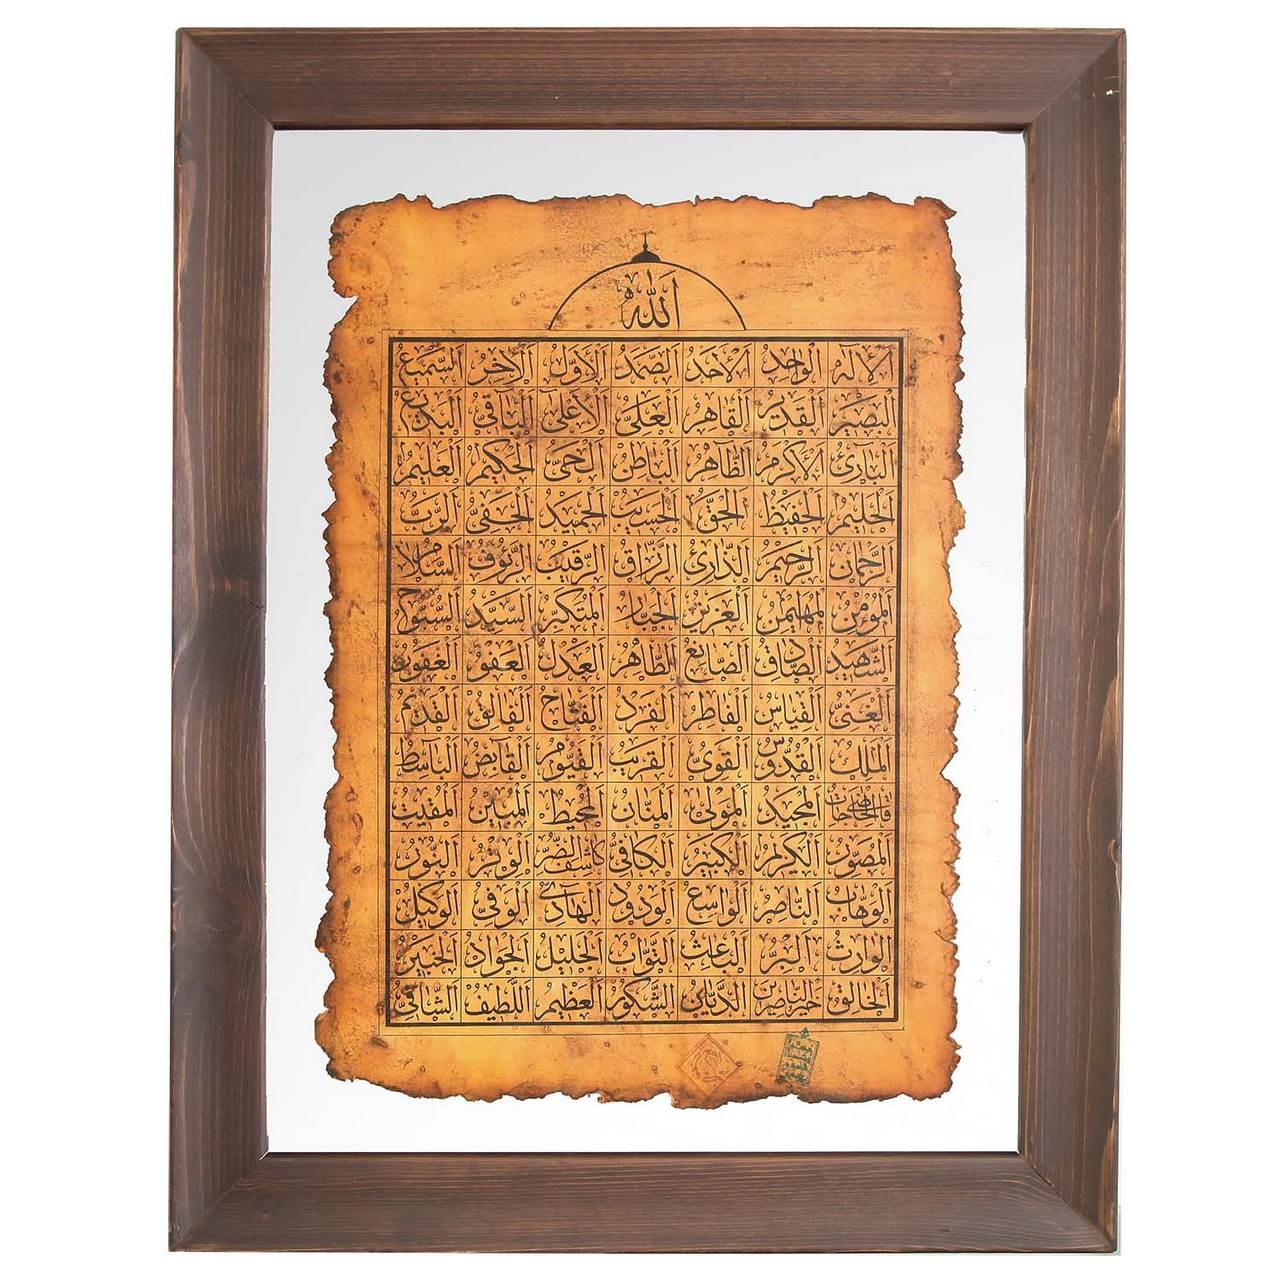 الله
الإله الواحد الأحد الصمد الأول الآخر السميع
البصير القدير القاهر العلي الأعلى الباقي البديع
البارئ الأكرم الظاهر الباطن الحي الحكيم العليم
الحليم الحفيظ الحق الحسيب الحميد الحفي الرب
الرحمن الرحيم الذارئ الرزاق الرقيب الرئوف السلام
المؤمن المهيمن العزيز الجبار المتكبر السيد السبوح
الشهيد الصادق الصانع الطاهر العدل العفو الغفور
الغني الغياث الفاطر الفرد الفتاح الفالق القديم
الملك القدوس القوي القريب القيوم القابض الباسط
قاضي الحاجات المجيد المولى المنان المحيط المبين المقيت
المصور الكريم الكبير الكافي كاشف الضر الوتر النور
الوهاب الناصر الواسع الودود الهادي الوفي الوكيل
الوارث البر الباعث التواب الجليل الجواد الخبير
الخالق خير الناصرين الديان الشكور العظيم اللطيف الشافي